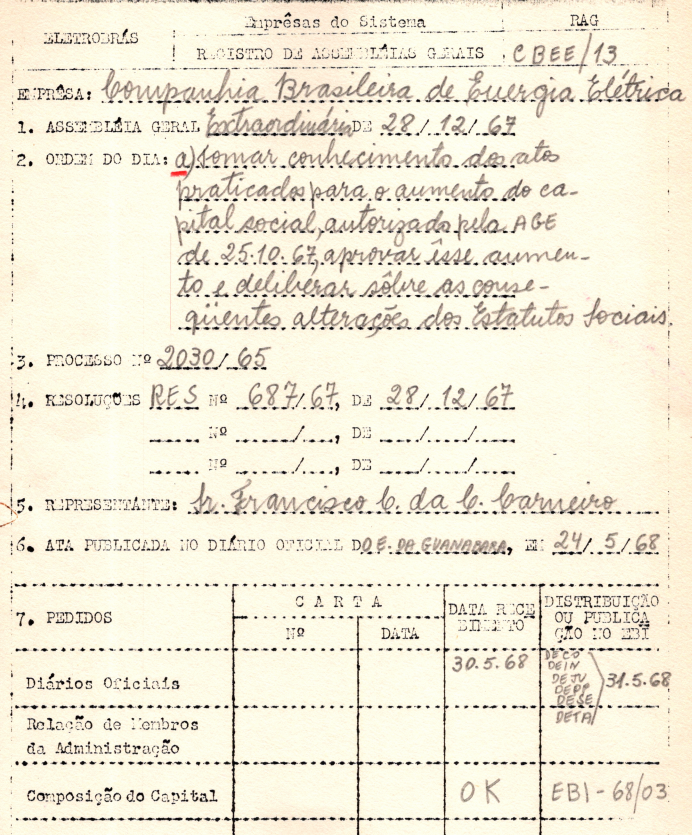 ELETROBRÁS
Emprêsas do Sistema
RAG
REGISTRO DE ASSEMBLÉIAS GERAIS
CBEE/13
EMPRÊSA: Companhia Brasileira de Energia Elétrica
1. ASSEMBLÉIA GERAL Extraordinária DE 28/12/67
2. ORDEM DO DIA: a) tomar conhecimento dos atos
praticados para o aumento do ca-
pital social, autorizado pela AGE
de 25.10.67, aprovar êsse aumen-
to e deliberar sôbre as conse-
qüentes alterações dos Estatutos Sociais.
3. PROCESSO Nº 2030/65
4. RESOLUÇÕES RES Nº 687/67, DE 28/12/67
Nº ...../....., DE ...../...../.....
Nº ...../....., DE ...../...../.....
5. REPRESENTANTE: Sr. Francisco C. da C. Carneiro
6. ATA PUBLICADA NO DIÁRIO OFICIAL DO E. DA GUANABARA, EM 24/5/68
7. PEDIDOS
CARTA
Nº
DATA
DATA RECE
BIMENTO
DISTRIBUIÇÃO
OU PUBLICA
ÇÃO NO EBI
Diários Oficiais
30.5.68
DECO
DEIN
DEJU
DEPF
DESE
DETA
31.5.68
Relação de Membros
da Administração
Composição do Capital
OK
EBI-68/03